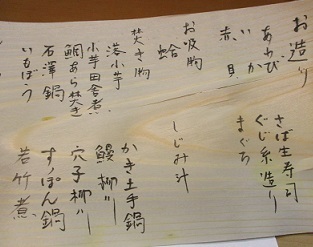 お造り
あわび
いか
赤貝
さば生寿司
ぐじ糸造り
まぐろ
お吸物
蛤
しじみ汁
焚き物
小芋田舎煮
鯛あら焚き
石澤鍋
いもぼう
かき土手鍋
鰻柳川
穴子柳川
すっぽん鍋
若竹煮